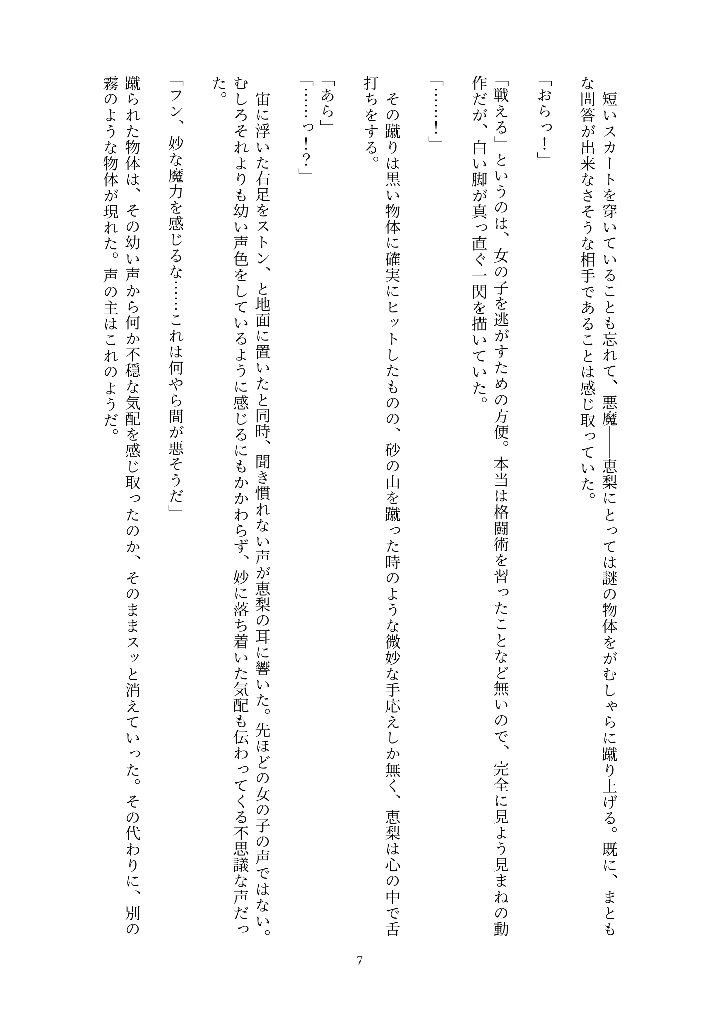 短いスカートを穿いていることも忘れて、悪魔――恵梨にとっては謎の物体をがむしゃらに蹴り上げる。既に、まとも
な問答が出来なさそうな相手であることは感じ取っていた。
「おらっ！」
「戦える」というのは、女の子を逃がすための方便。本当は格闘術を習ったことなど無いので、完全に見よう見まねの動
作だが、白い脚が真っ直ぐ一閃を描いていた。
「……！」
　その蹴りは黒い物体に確実にヒットしたものの、砂の山を蹴った時のような微妙な手応えしか無く、恵梨は心の中で舌
打ちをする。
「あら」
「……っ！？」
　宙に浮いた右足をストン、と地面に置いたと同時、聞き慣れない声が恵梨の耳に響いた。先ほどの女の子の声ではない。
むしろそれよりも幼い声色をしているように感じるにもかかわらず、妙に落ち着いた気配も伝わってくる不思議な声だっ
た。
「フン、妙な魔力を感じるな……これは何やら間が悪そうだ」
蹴られた物体は、その幼い声から何か不穏な気配を感じ取ったのか、そのままスッと消えていった。その代わりに、別の
霧のような物体が現れた。声の主はこれのようだ。
7